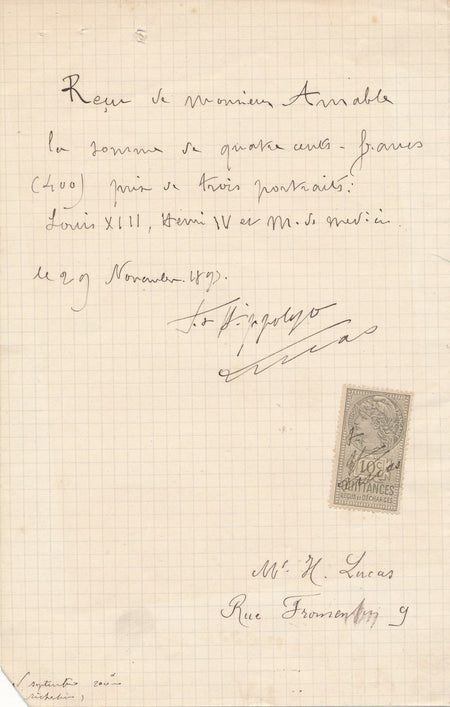 Reçu de monsieur Amable
la somme de quatre cents francs
(400) prix de trois portraits:
Louis XIII, Henri IV et M. de medicis
le 29 Novembre
Hippolyte
Lucas
10c
QUITTANCES
REÇUS ET DÉCHARGES
Mr. H. Lucas
Rue Fromentin 9
septembre
richelieu